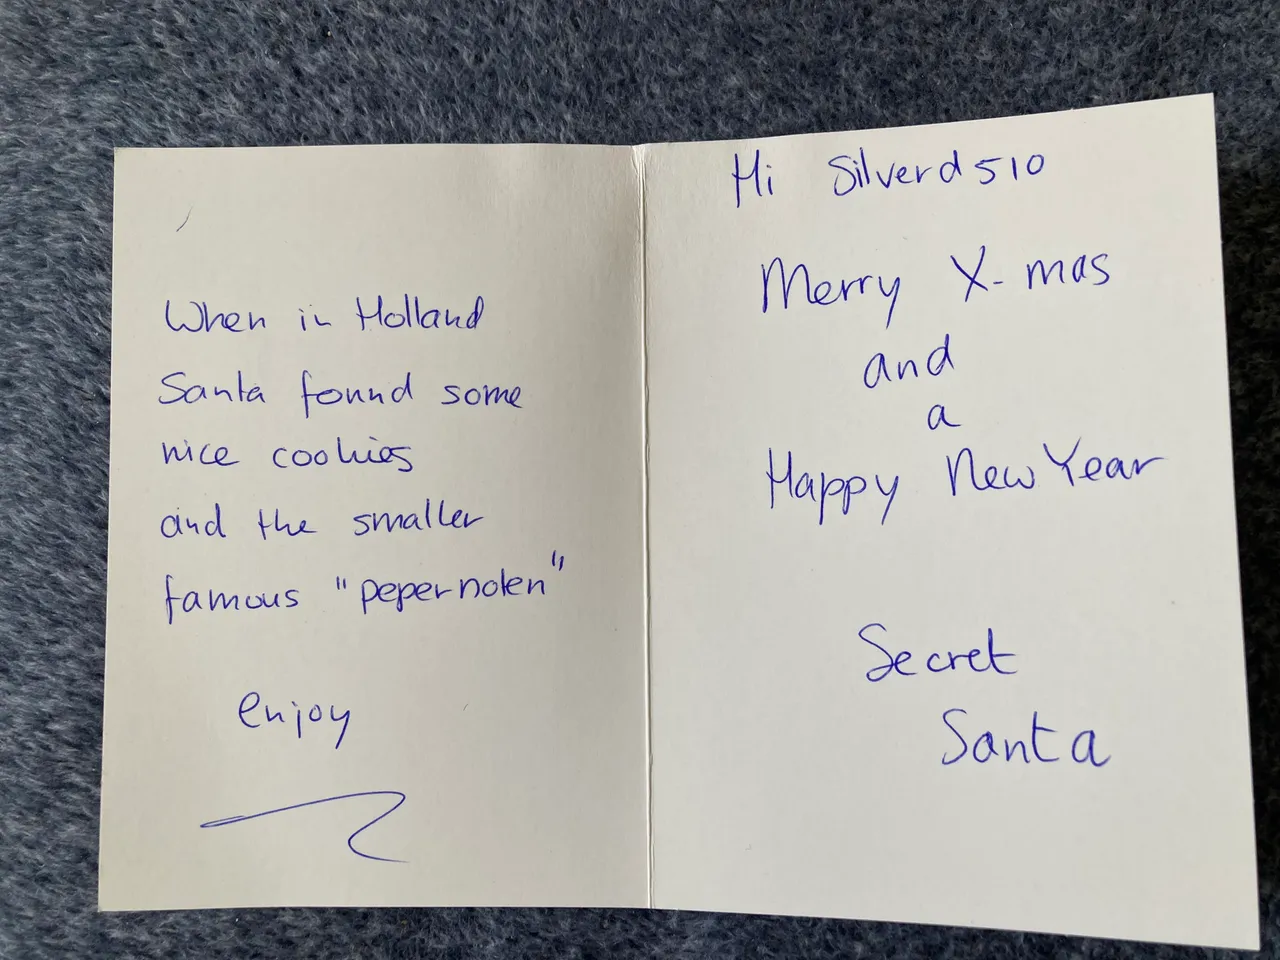 When in Holland
Santa found some
nice cookies
and the smaller
famous "pepernoten"
enjoy
Hi Silverd510
Merry X-mas
and
a
Happy New Year
Secret
Santa